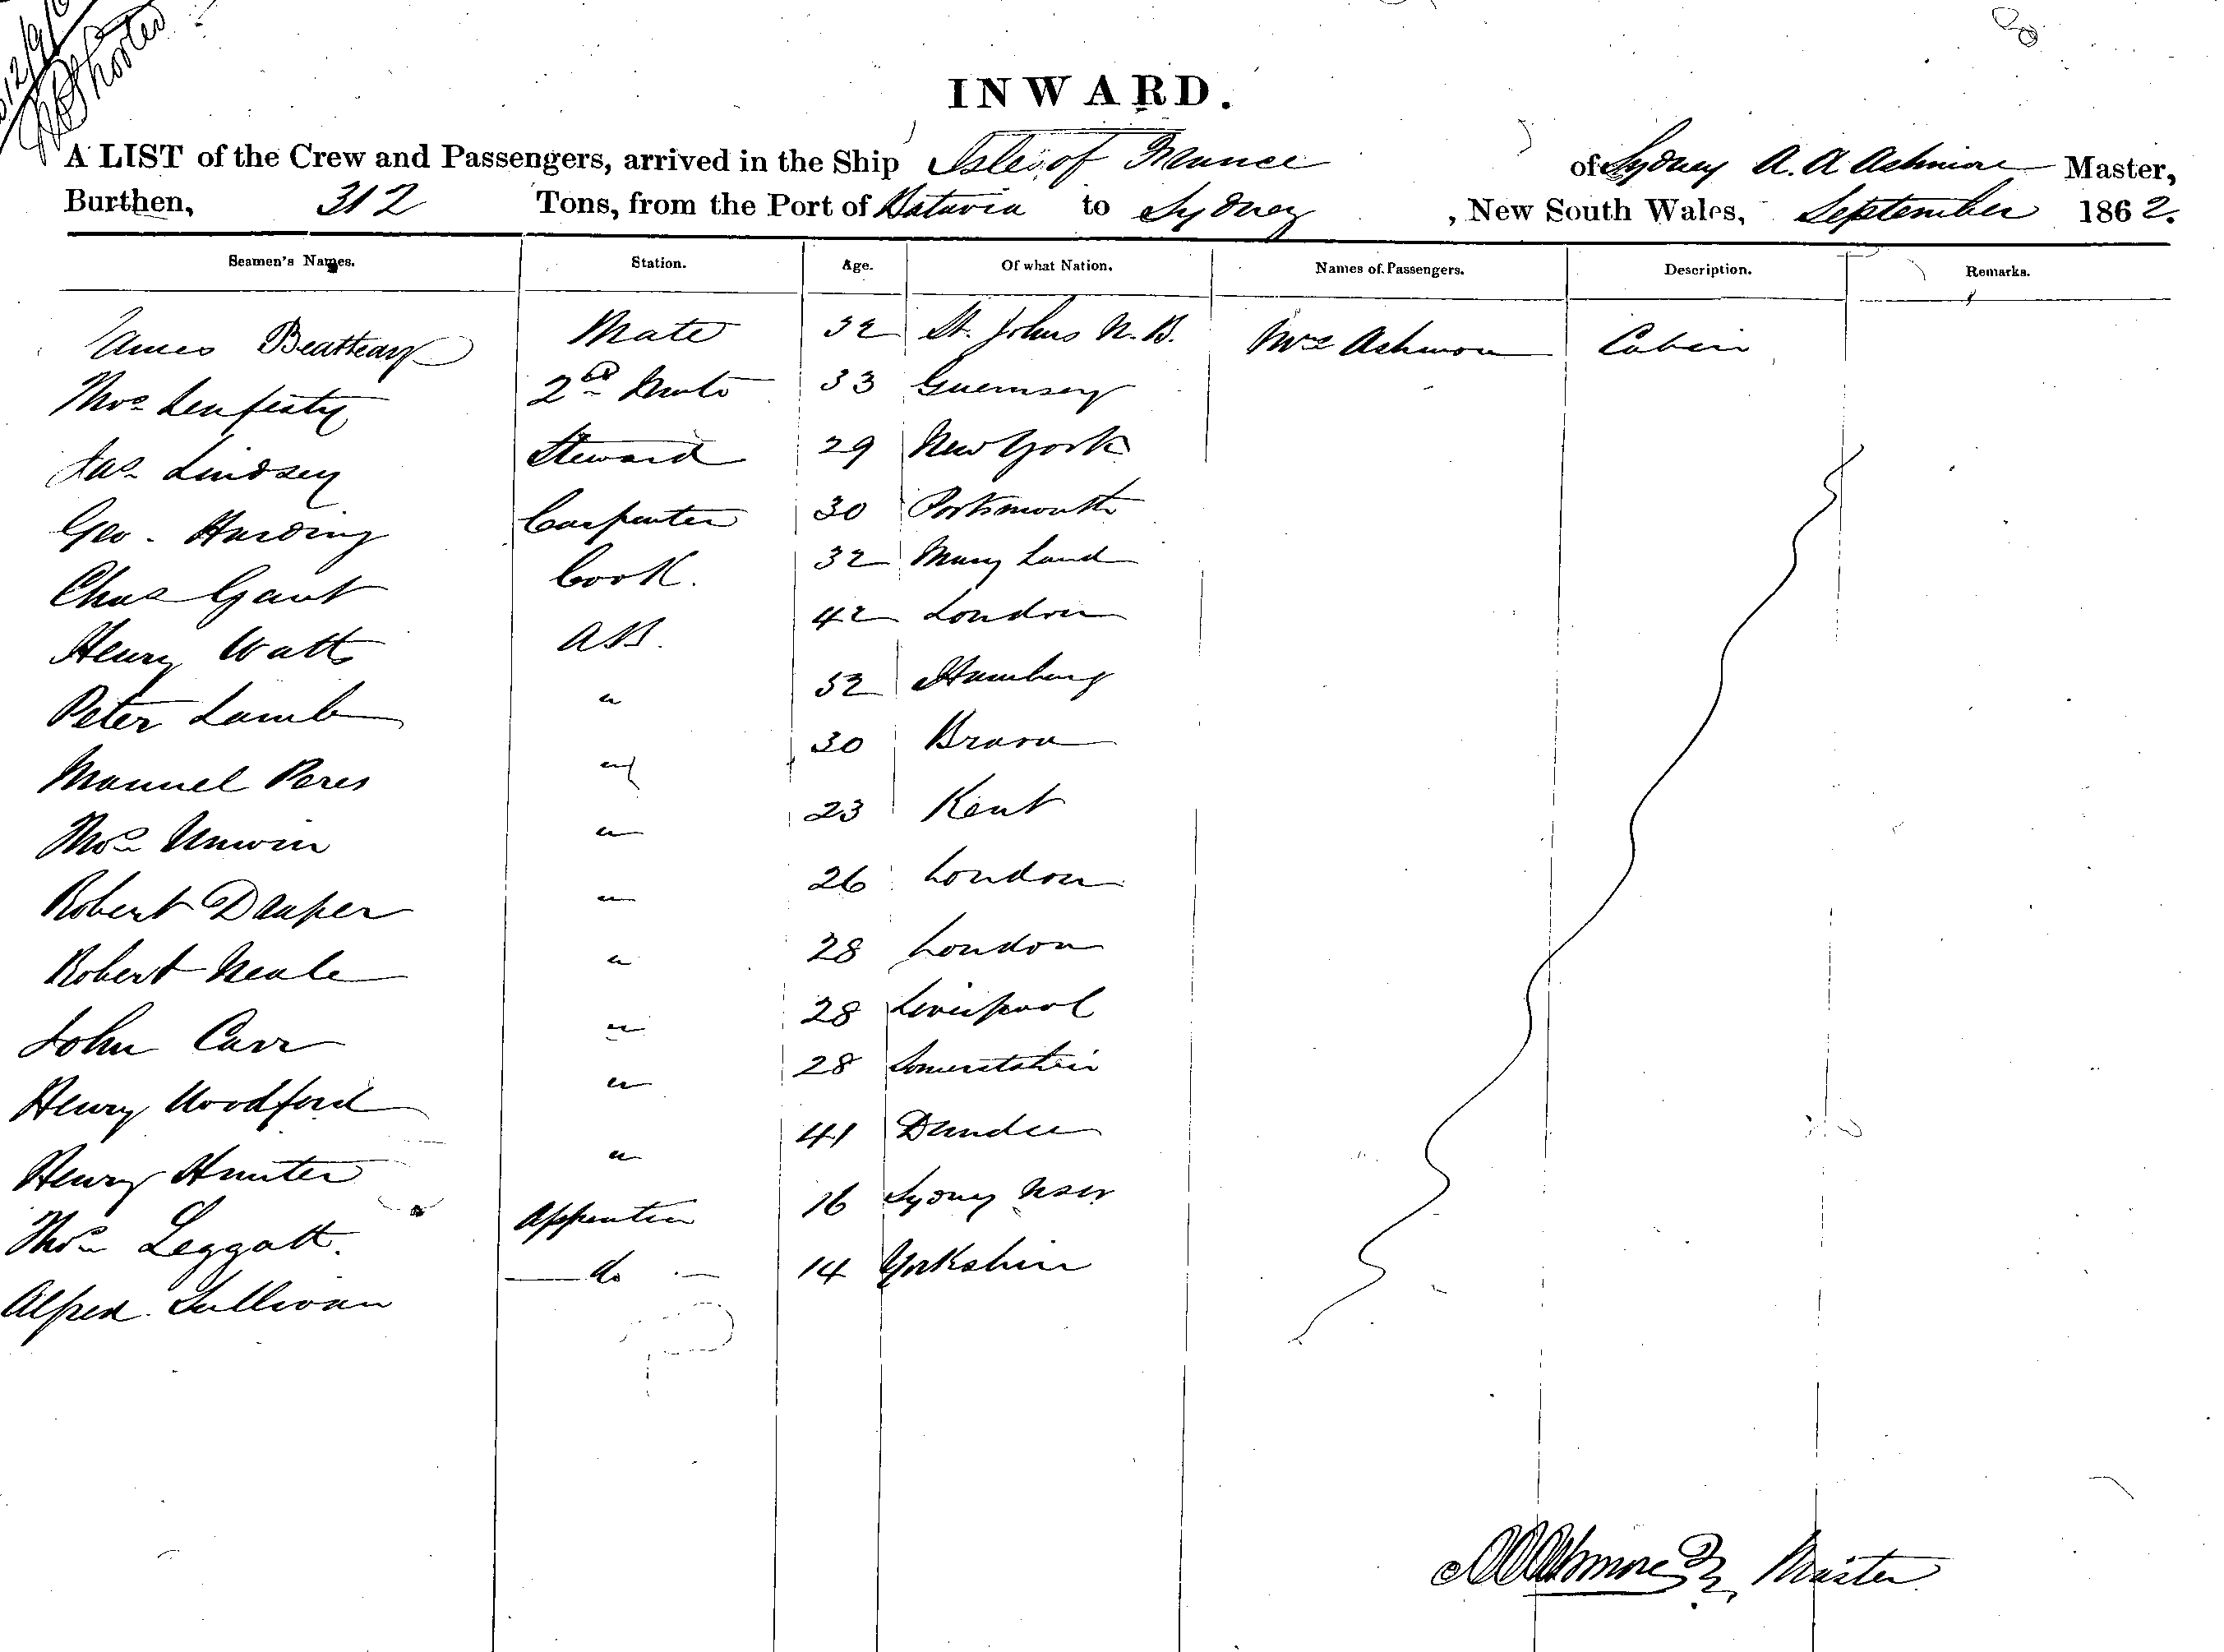 12/9/6
INWARD.
A LIST of the Crew and Passengers, arrived in the Ship Isle of France of Sydney A. A Ashmore Master,
Burthen, 312 Tons, from the Port of Batavia to Sydney, New South Wales, September 1862.
Seamen's Names. Station. Age. Of what Nation. Names of Passengers. Description. Remarks.
James Beatteay Mate 32 St. Johns N. B. Mrs Ashmore Cabin
Thos Lenfesty 2nd Mate 33 Guernsey
Jas Lindsey Steward 29 New York
Geo. Harding Carpenter 30 Portsmouth
Chas Gant Cook. 32 Mary Land
Henry Watts AB. 42 London
Peter Lamb " 52 Hamburg
Manuel Peres " 30 Brava
Thos Unwin " 23 Kent
Robert Draper " 26 London
Robert Neale " 28 London
John Carr " 28 Liverpool
Henry Woodford " 28 Somersetshire
Henry Hunter " 41 Dundee
Thos Leggatt. Apprentice 16 Sydney NSW
Alfred Sullivan do 14 Yorkshire
AAAshmore Master